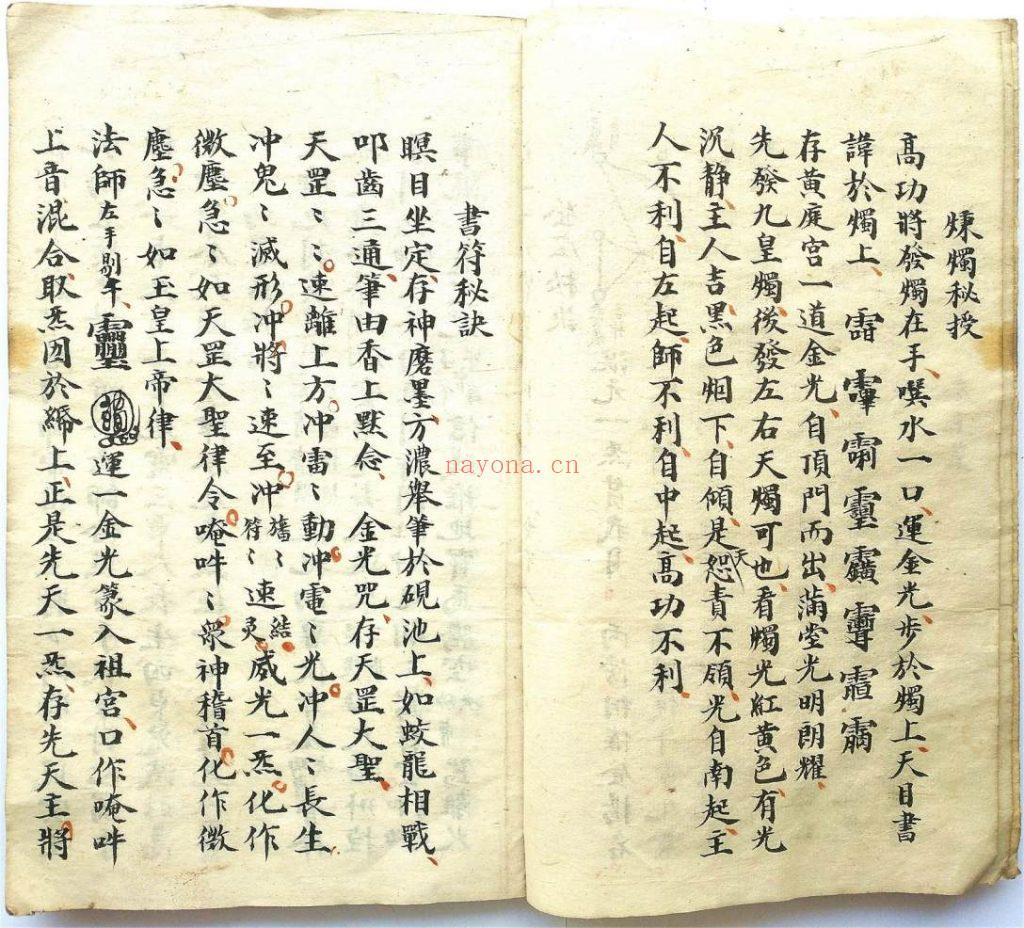 煉燭秘授
高功將發燭在手、噀水一口、運金光、步於燭上、天目書
諱於燭上、
存黃庭宮一道金光、自頂門而出、滿堂光明朗耀、
先發九皇燭、後發左右天燭可也、看燭光紅黃色、有光
沉靜、主人吉、黑色烟下、自傾、是天怒責不領、光自南起、主
人不利、自左起、師不利、自中起、高功不利、
書符秘訣
瞑目坐定、存神磨墨、方濃舉筆於硯池上、如蛟龍相戰、
叩齒三通、筆由香上默念、金光咒、存天罡大聖、
天罡〻、速離上方、冲雷〻動、冲電〻光、冲人〻長生
冲鬼〻滅形、冲將〻速至、冲旛〻速結、符〻速灵、威光一炁、化作
微塵、急〻如天罡大聖律令、唵吽〻、眾神稽首、化作微
塵、急〻如玉皇上帝律、
法師左手剔午、運一金光篆入祖宮、口作唵吽
上音混合、取炁因於縧上、正是先天一炁、存先天主將
nayona.cn